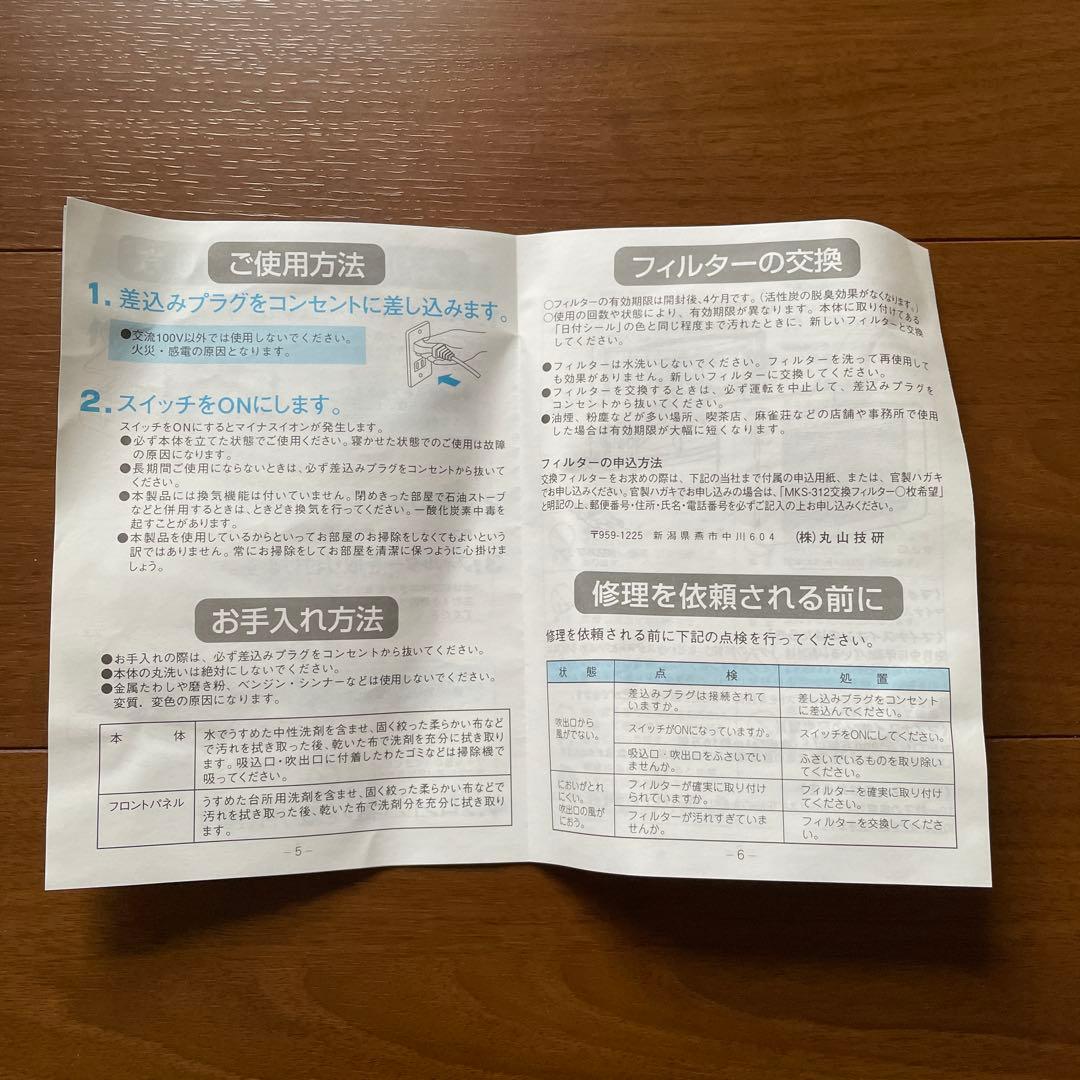 ご使用方法
1. 差込みプラグをコンセントに差し込みます。
●交流100V以外では使用しないでください。
火災・感電の原因となります。
2. スイッチをONにします。
スイッチをONにするとマイナスイオンが発生します。
●必ず本体を立てた状態でご使用ください。寝かせた状態でのご使用は故障
の原因になります。
●長期間ご使用にならないときは、必ず差込みプラグをコンセントから抜いて
ください。
●本製品には換気機能は付いていません。閉めきった部屋で石油ストーブ
などと併用するときは、ときどき換気を行ってください。一酸化炭素中毒を
起すことがあります。
●本製品を使用しているからといってお部屋のお掃除をしなくてもよいという
訳ではありません。常にお掃除をしてお部屋を清潔に保つように心掛けま
しょう。
お手入れ方法
●お手入れの際は、必ず差込みプラグをコンセントから抜いてください。
●本体の丸洗いは絶対にしないでください。
●金属たわしや磨き粉、ベンジン・シンナーなどは使用しないでください。
変質．変色の原因になります。
本 体
水でうすめた中性洗剤を含ませ、固く絞った柔らかい布など
で汚れを拭き取った後、乾いた布で洗剤を充分に拭き取り
ます。吸込口・吹出口に付着したわたゴミなどは掃除機で
吸ってください。
フロントパネル
うすめた台所用洗剤を含ませ、固く絞った柔らかい布などで
汚れを拭き取った後、乾いた布で洗剤分を充分に拭き取り
ます。
－5－
フィルターの交換
○フィルターの有効期限は開封後、4ケ月です。（活性炭の脱臭効果がなくなります。）
○使用の回数や状態により、有効期限が異なります。本体に取り付けてある
「日付シール」の色と同じ程度まで汚れたときに、新しいフィルターと交換
してください。
●フィルターは水洗いしないでください。フィルターを洗って再使用して
も効果がありません。新しいフィルターに交換してください。
●フィルターを交換するときは、必ず運転を中止して、差込みプラグを
コンセントから抜いてください。
●油煙、粉塵などが多い場所、喫茶店、麻雀荘などの店舗や事務所で使用
した場合は有効期限が大幅に短くなります。
フィルターの申込方法
交換フィルターをお求めの際は、下記の当社まで付属の申込用紙、または、官製ハガキ
でお申し込みください。官製ハガキでお申し込みの場合は、「MKS-312交換フィルター○枚希望」
と明記の上、郵便番号・住所・氏名・電話番号を必ずご記入の上お申し込みください。
〒959-1225 新潟県燕市中川604 （株）丸山技研
修理を依頼される前に
修理を依頼される前に下記の点検を行ってください。
状 態 点 検 処 置
吹出口から
風がでない。
差込みプラグは接続されて
いますか。
差し込みプラグをコンセント
に差込んでください。
スイッチがONになっていますか。
スイッチをONにしてください。
吸込口・吹出口をふさいでい
ませんか。
ふさいでいるものを取り除い
てください。
においがとれ
にくい。
吹出口の風が
におう。
フィルターが確実に取り付け
られていますか。
フィルターを確実に取り付け
てください。
フィルターが汚れすぎていま
せんか。
フィルターを交換してくださ
い。
－6－